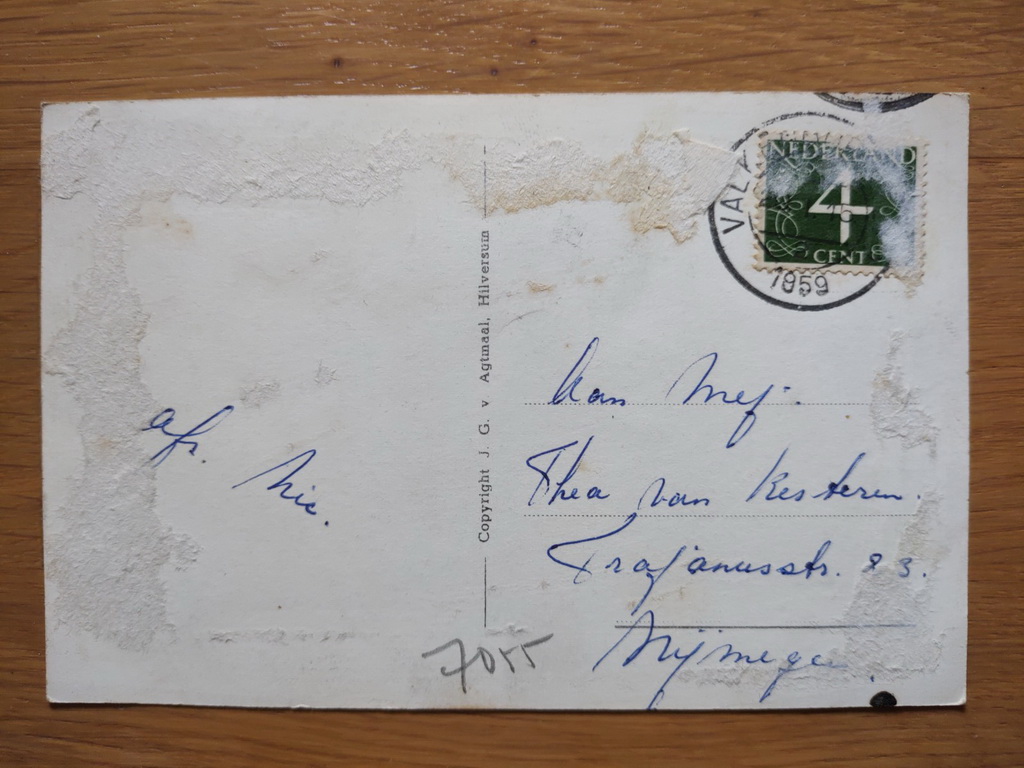 NEDERLAND
4
CENT
VALK
1959
Copyright J. G. v Agtmaal, Hilversum
afz.
Nic.
Aan Mej.
Thea van Kesteren.
Trajanusstr. 83.
Nijmegen
7055